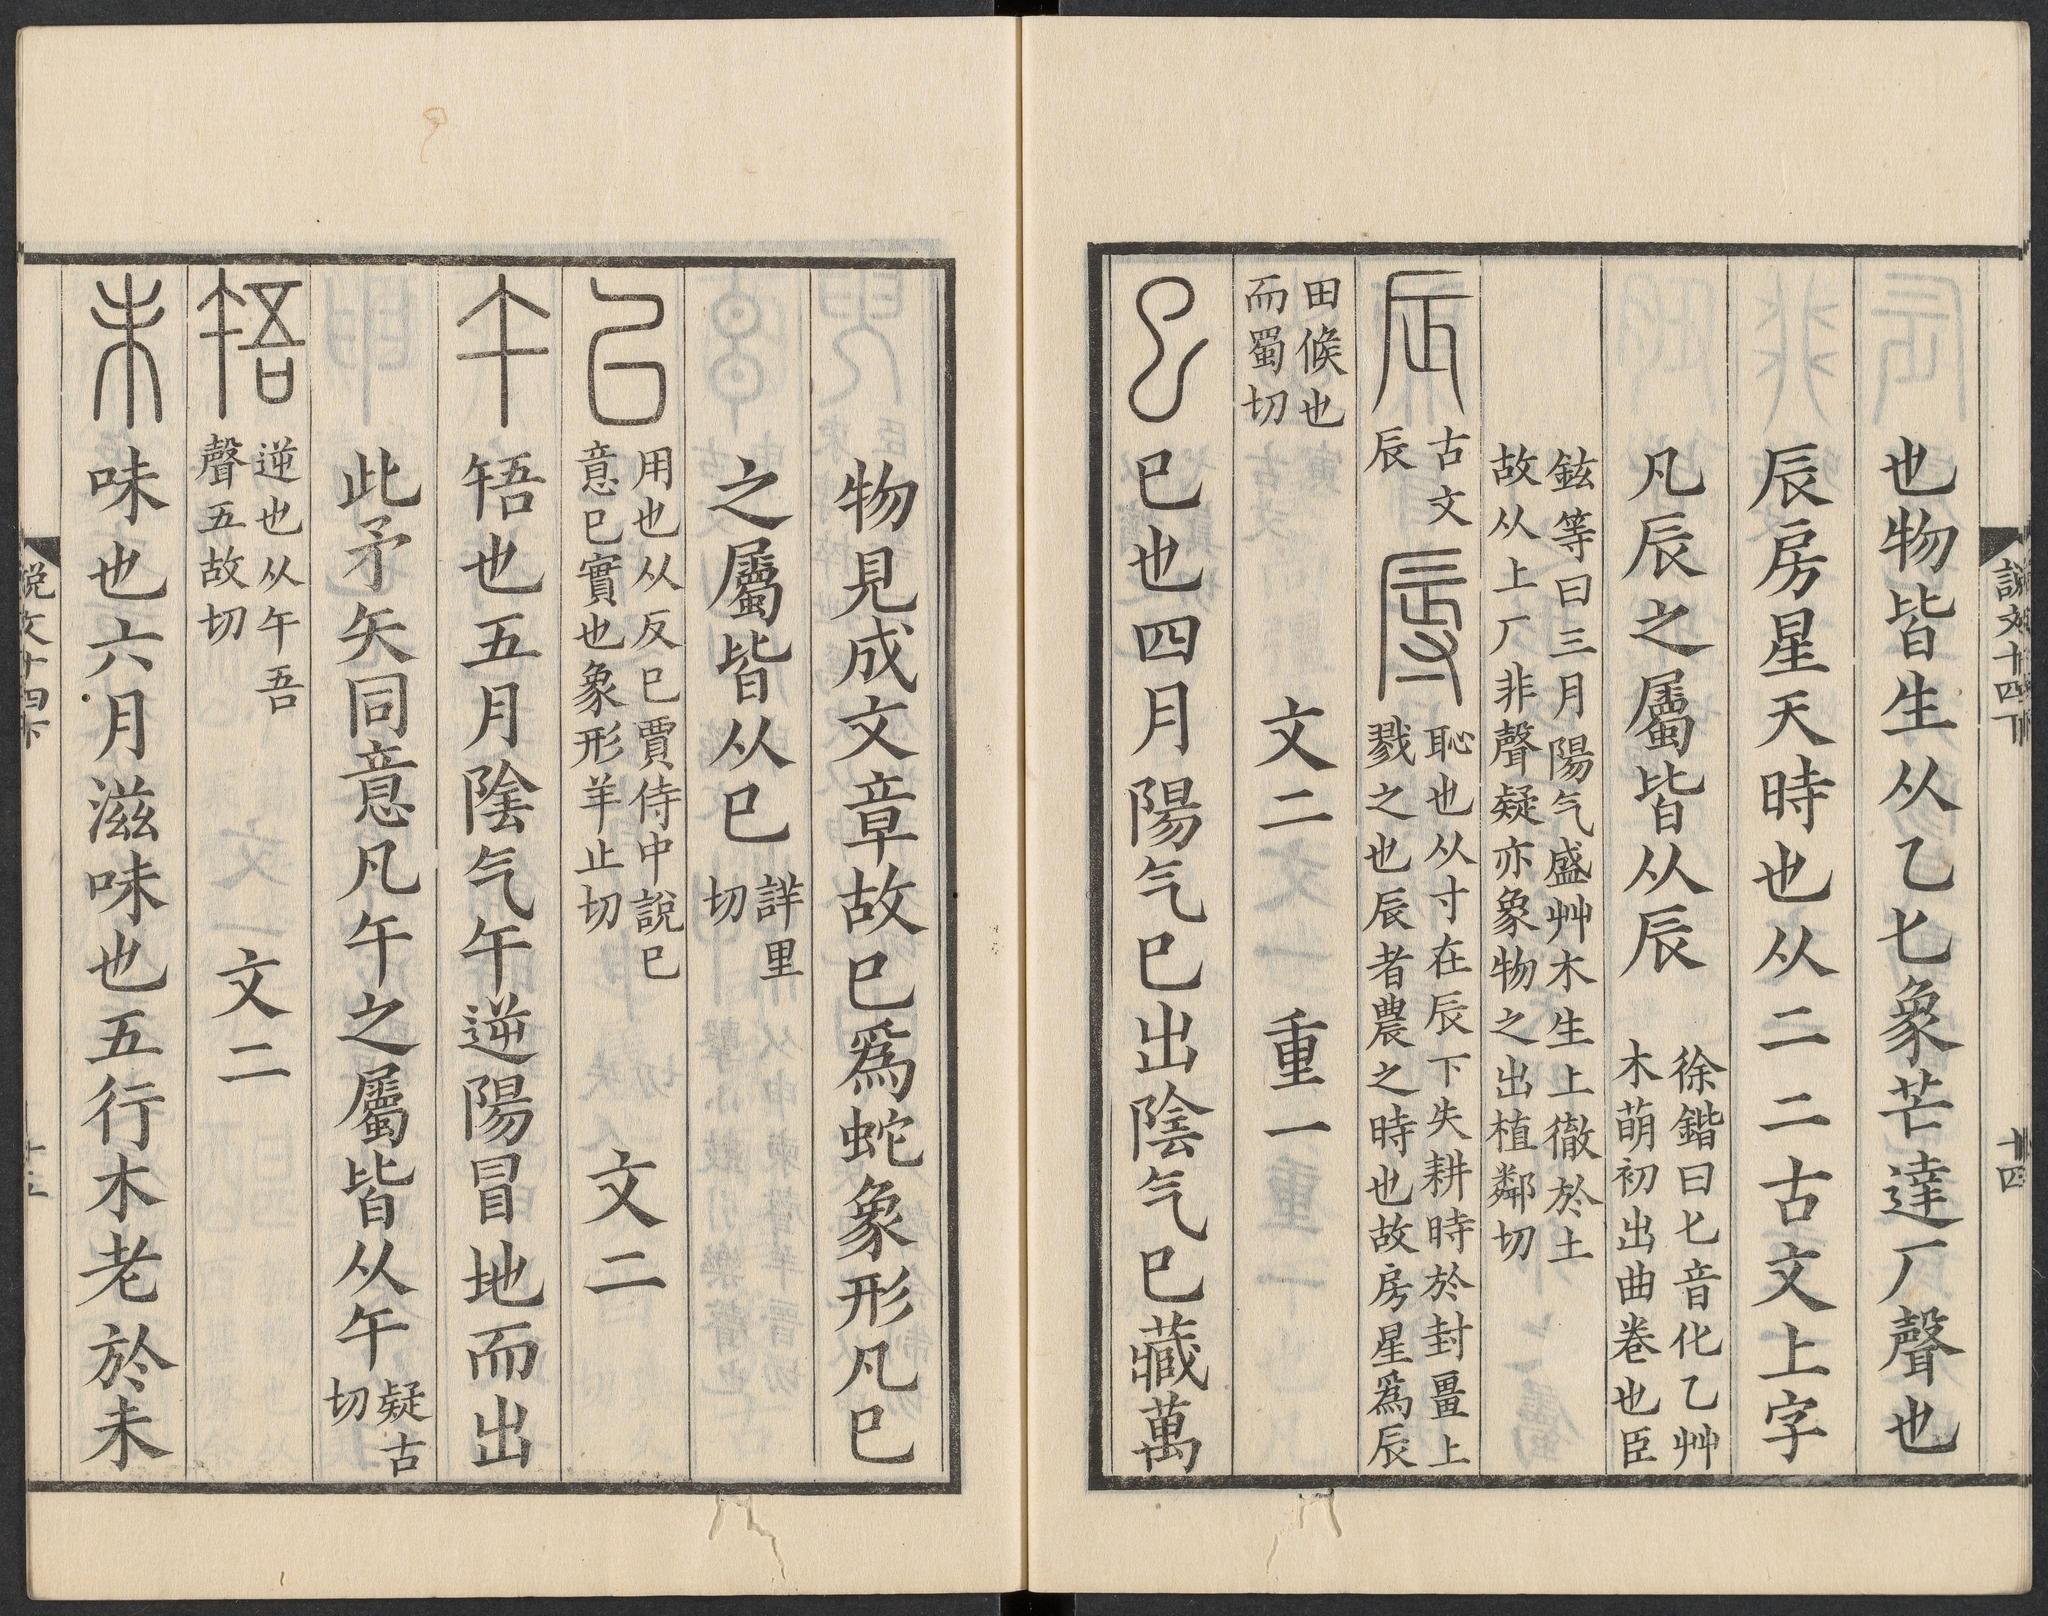 也物皆生从乙匕象芒達厂聲也
辰房星天時也从二二古文上字
凡辰之屬皆从辰
徐鍇曰匕音化乙艸
木萌初出曲卷也臣
鉉等曰三月陽气盛艸木生上徹於土
故从上厂非聲疑亦象物之出植鄰切
古文
辰
恥也从寸在辰下失耕時於封畺上
戮之也辰者農之時也故房星爲辰
田候也
而蜀切
文二 重一
巳也四月陽气巳出陰气巳藏萬
說文十四下
十四
物見成文章故巳爲蛇象形凡巳
之屬皆从巳
詳里
切
用也从反巳賈侍中說巳
意巳實也象形羊止切
文二
午 啎也五月陰气午逆陽冒地而出
此予矢同意凡午之屬皆从午
疑古
切
啎 逆也从午吾
聲五故切
文二
未 味也六月滋味也五行木老於未
說文十四下